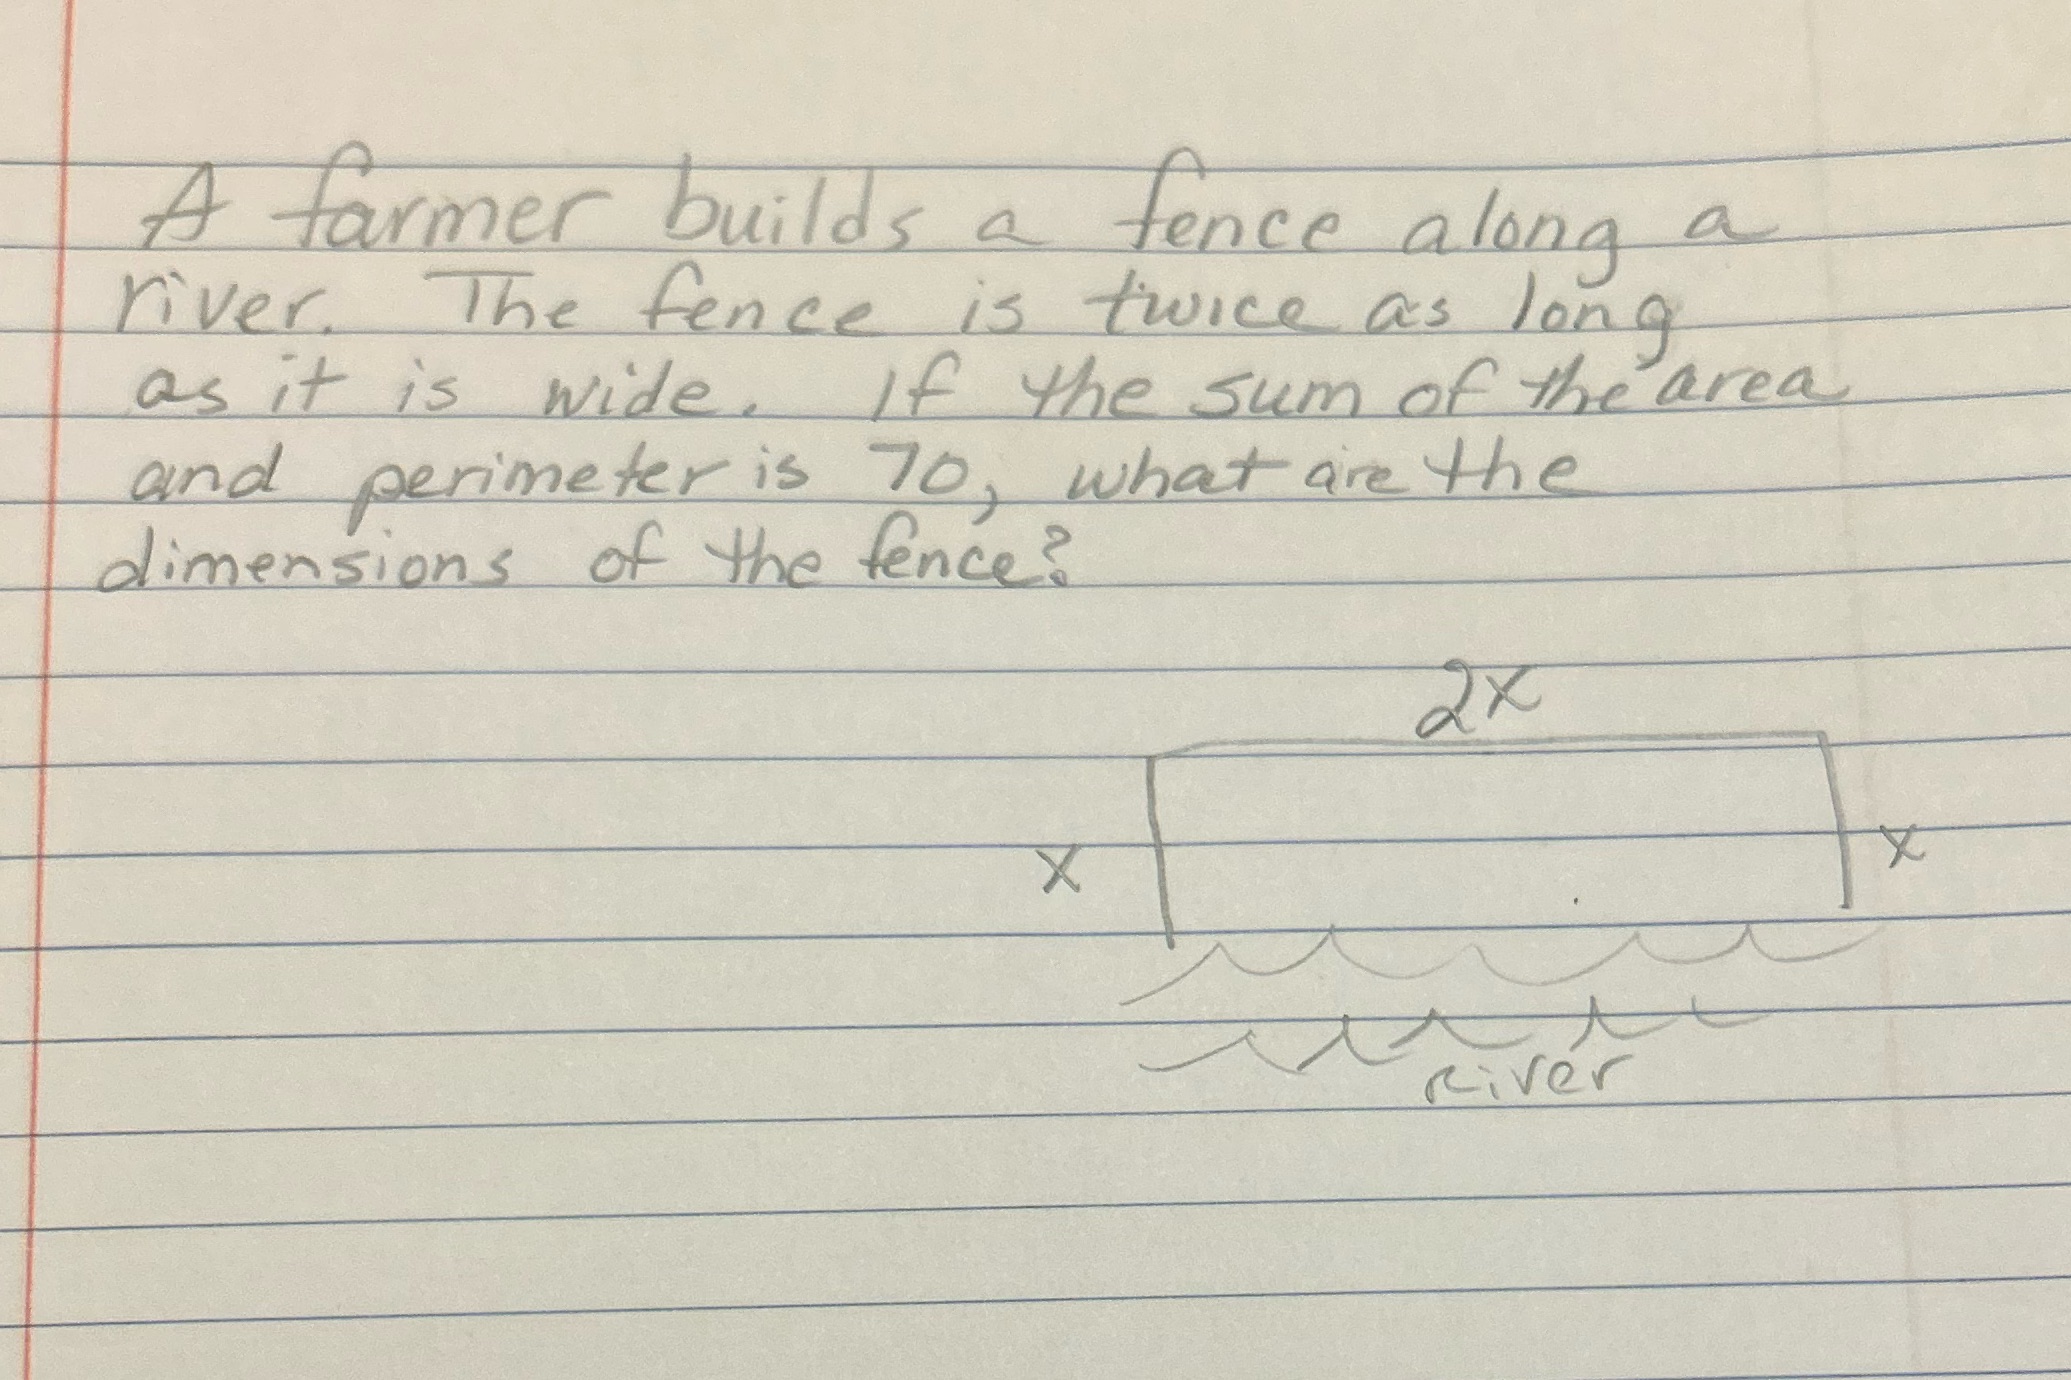 A farmer builds a fence along a
river. The fence is twice as long
as it is wide. If the sum of the area
and perimeter is 70, what are the
dimensions of the fence?
2x
x x
River